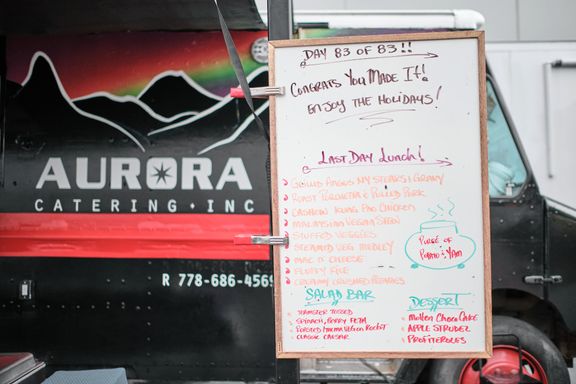 AURORA
CATERING • INC
R 778-686-4569
DAY 83 OF 83!!
CONGRATS YOU MADE IT!
ENJOY THE HOLIDAYS!
LAST DAY LUNCH!
GRILLED ANGUS NY STEAKS & GRAVY
ROAST PORCHETTA & PULLED PORK
CASHEW KUNG PAO CHICKEN
MALAYSIAN VEGAN STEW
STUFFED VEGGIES
STEAMED VEG MEDLEY
MAC N CHEESE
FLUFFY RICE
CREAMY CRUSHED POTATOES
PURÉE OF
POTATO & YAM
SALAD BAR
TOSSED
SPINACH, BERRY FETA
ROASTED
CLASSIC CAESAR
DESSERT
MOLTEN CHOCO CAKE
APPLE STRUDEL
PROFITEROLES